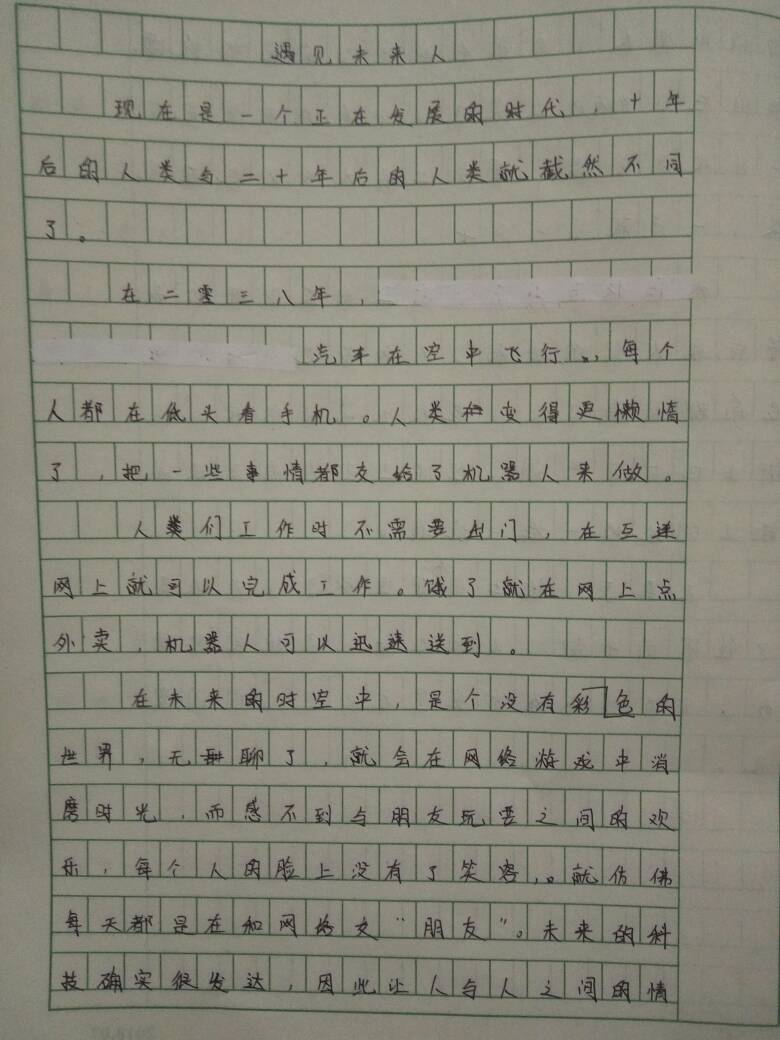 遇见未来人
现在是一个正在发展的时代，十年
后的人类与二十年后的人类就截然不同
了。
在二零三八年，
汽车在空中飞行。，每个
人都在低头看手机。人类变得更懒惰
了，把一些事情都交给了机器人来做。
人类们工作时不需要出门，在互连
网上就可以完成工作。饿了就在网上点
外卖，机器人可以迅速送到。
在未来的时空中，是个没有彩色的
世界，无聊了，就会在网络游戏中消
磨时光，而感不到与朋友玩耍之间的欢
乐，每个人的脸上没有了笑容，。就仿佛
每天都是在和网络交“朋友”。未来的科
技确实很发达，因此让人与人之间的情